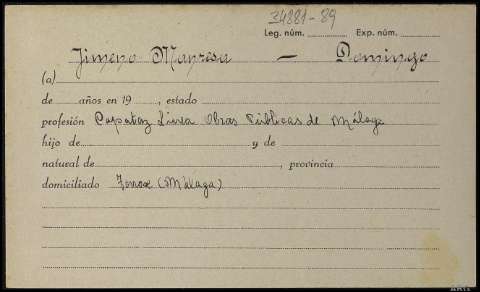 34881-89
Leg. núm. Exp. núm.
Jimeno Manresa — Domingo
(a)
de años en 19 , estado
profesión Capataz Linea Obras Públicas de Málaga
hijo de y de
natural de , provincia
domiciliado Torrox (Málaga)